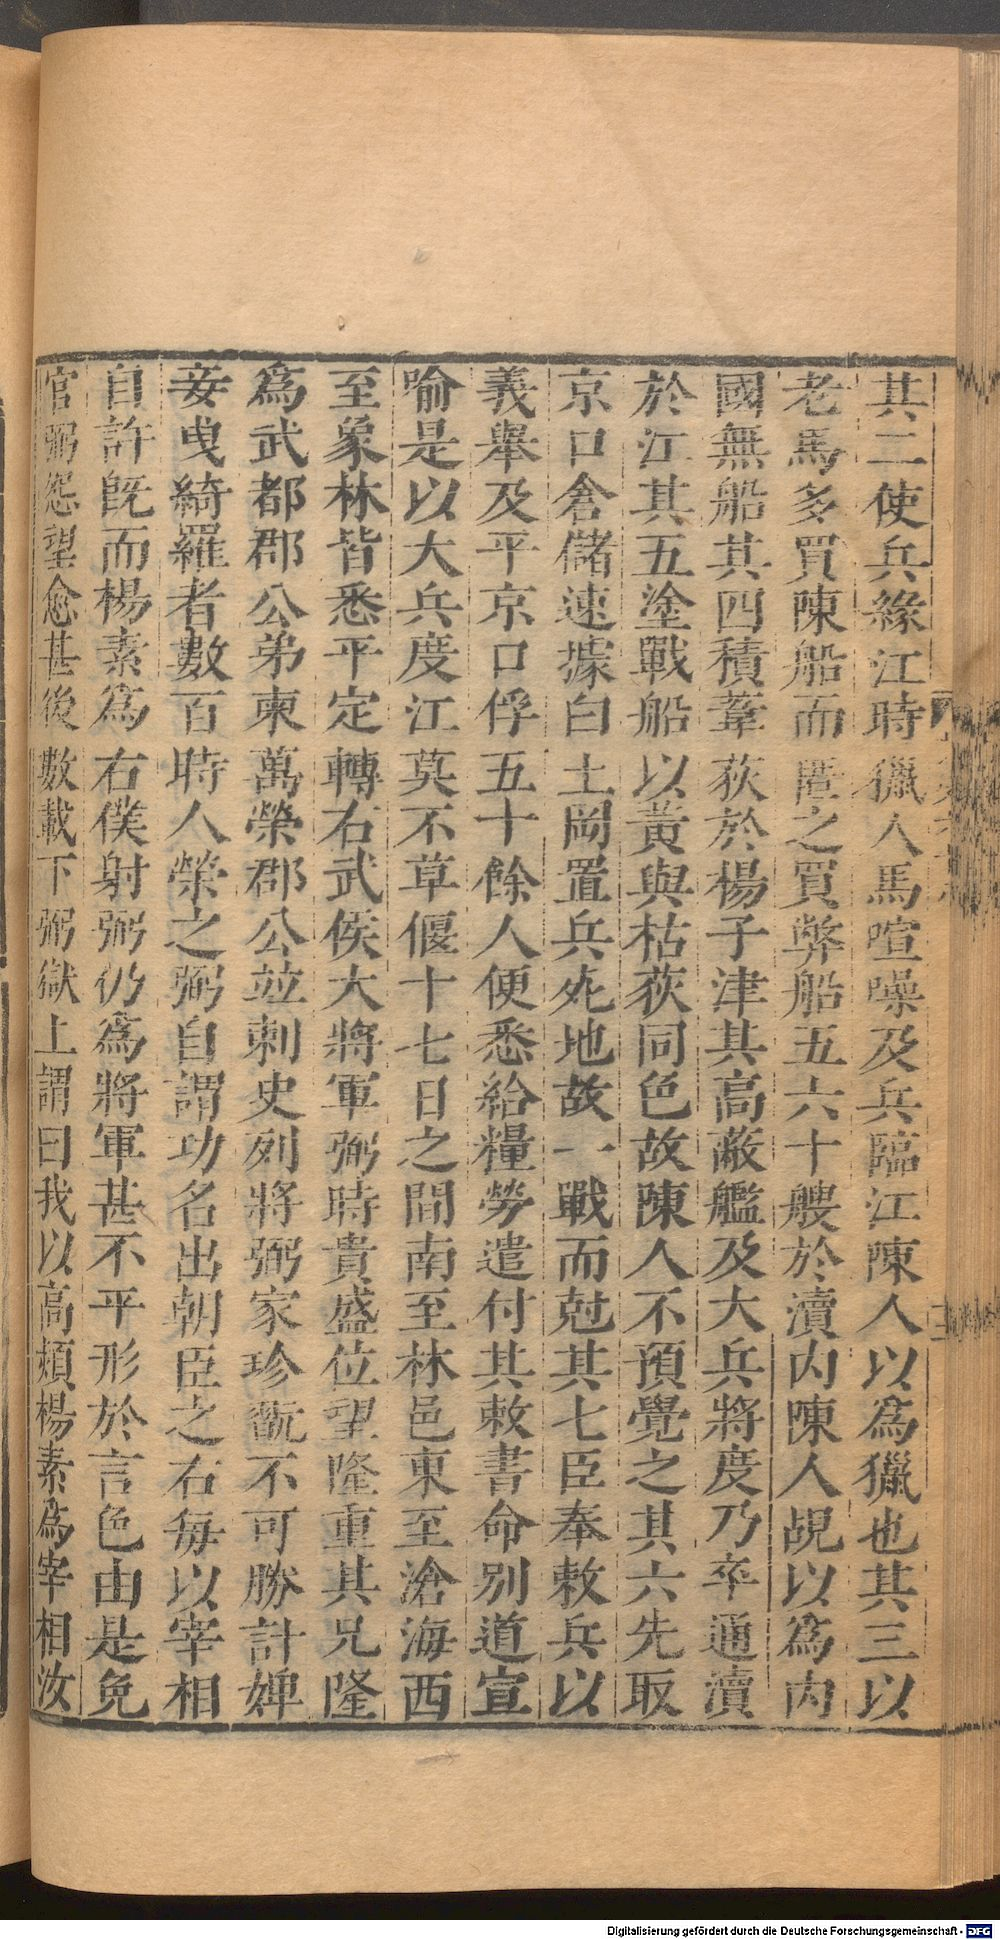 其二使兵緣江時獵人馬喧噪及兵臨江陳人以為獵也其三以
老馬多買陳船而匿之買弊船五六十艘於瀆内陳人覘以為内
國無船其四積葦荻於楊子津其高蔽艦及大兵將度乃卒通瀆
於江其五塗戰船以黄與枯荻同色故陳人不預覺之其六先取
京口倉儲速據白土岡置兵死地故一戰而尅其七臣奉敕兵以
義舉及平京口俘五十餘人便悉給糧勞遣付其敕書命别道宣
喻是以大兵度江莫不草偃十七日之間南至林邑東至滄海西
至象林皆悉平定轉右武侯大將軍弼時貴盛位望隆重其兄隆
為武都郡公弟東萬榮郡公竝刺史列將弼家珍翫不可勝計婢
妾曳綺羅者數百時人榮之弼自謂功名出朝臣之右每以宰相
自許旣而楊素為右僕射弼仍為將軍甚不平形於言色由是免
官弼怨望愈甚後數載下弼獄上謂曰我以高熲楊素為宰相汝
Digitalisierung gefördert durch die Deutsche Forschungsgemeinschaft - DFG